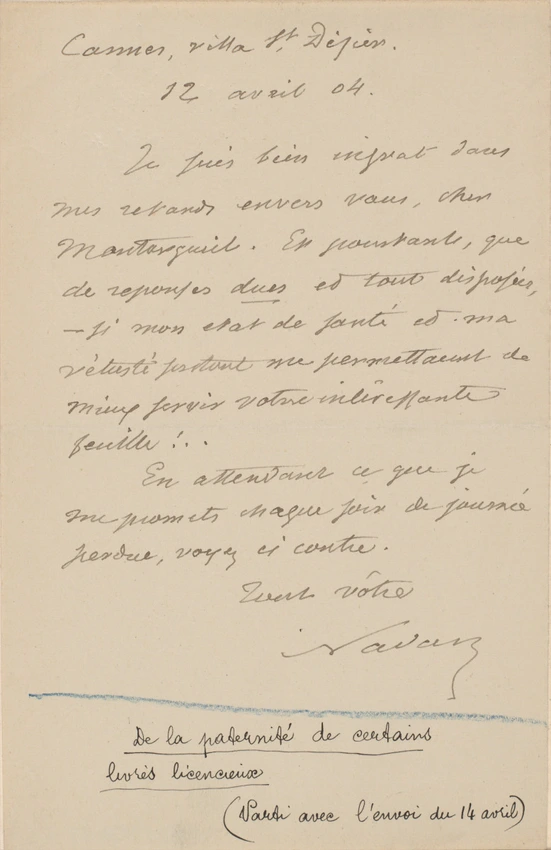 Cannes, villa St. Désiré.
12 avril 04.
Je suis bien ingrat dans
mes retards envers vous, cher
Montorgueil. Et pourtant, que
de réponses dues et tout disposées,
— si mon état de santé et ma
vétusté surtout me permettaient de
mieux servir votre intéressante
feuille !..
En attendant ce que je
me promets chaque soir de journée
perdue, voyez ci contre.
Tout vôtre
Nadar
De la paternité de certains
livres licencieux
(Parti avec l'envoi du 14 avril)